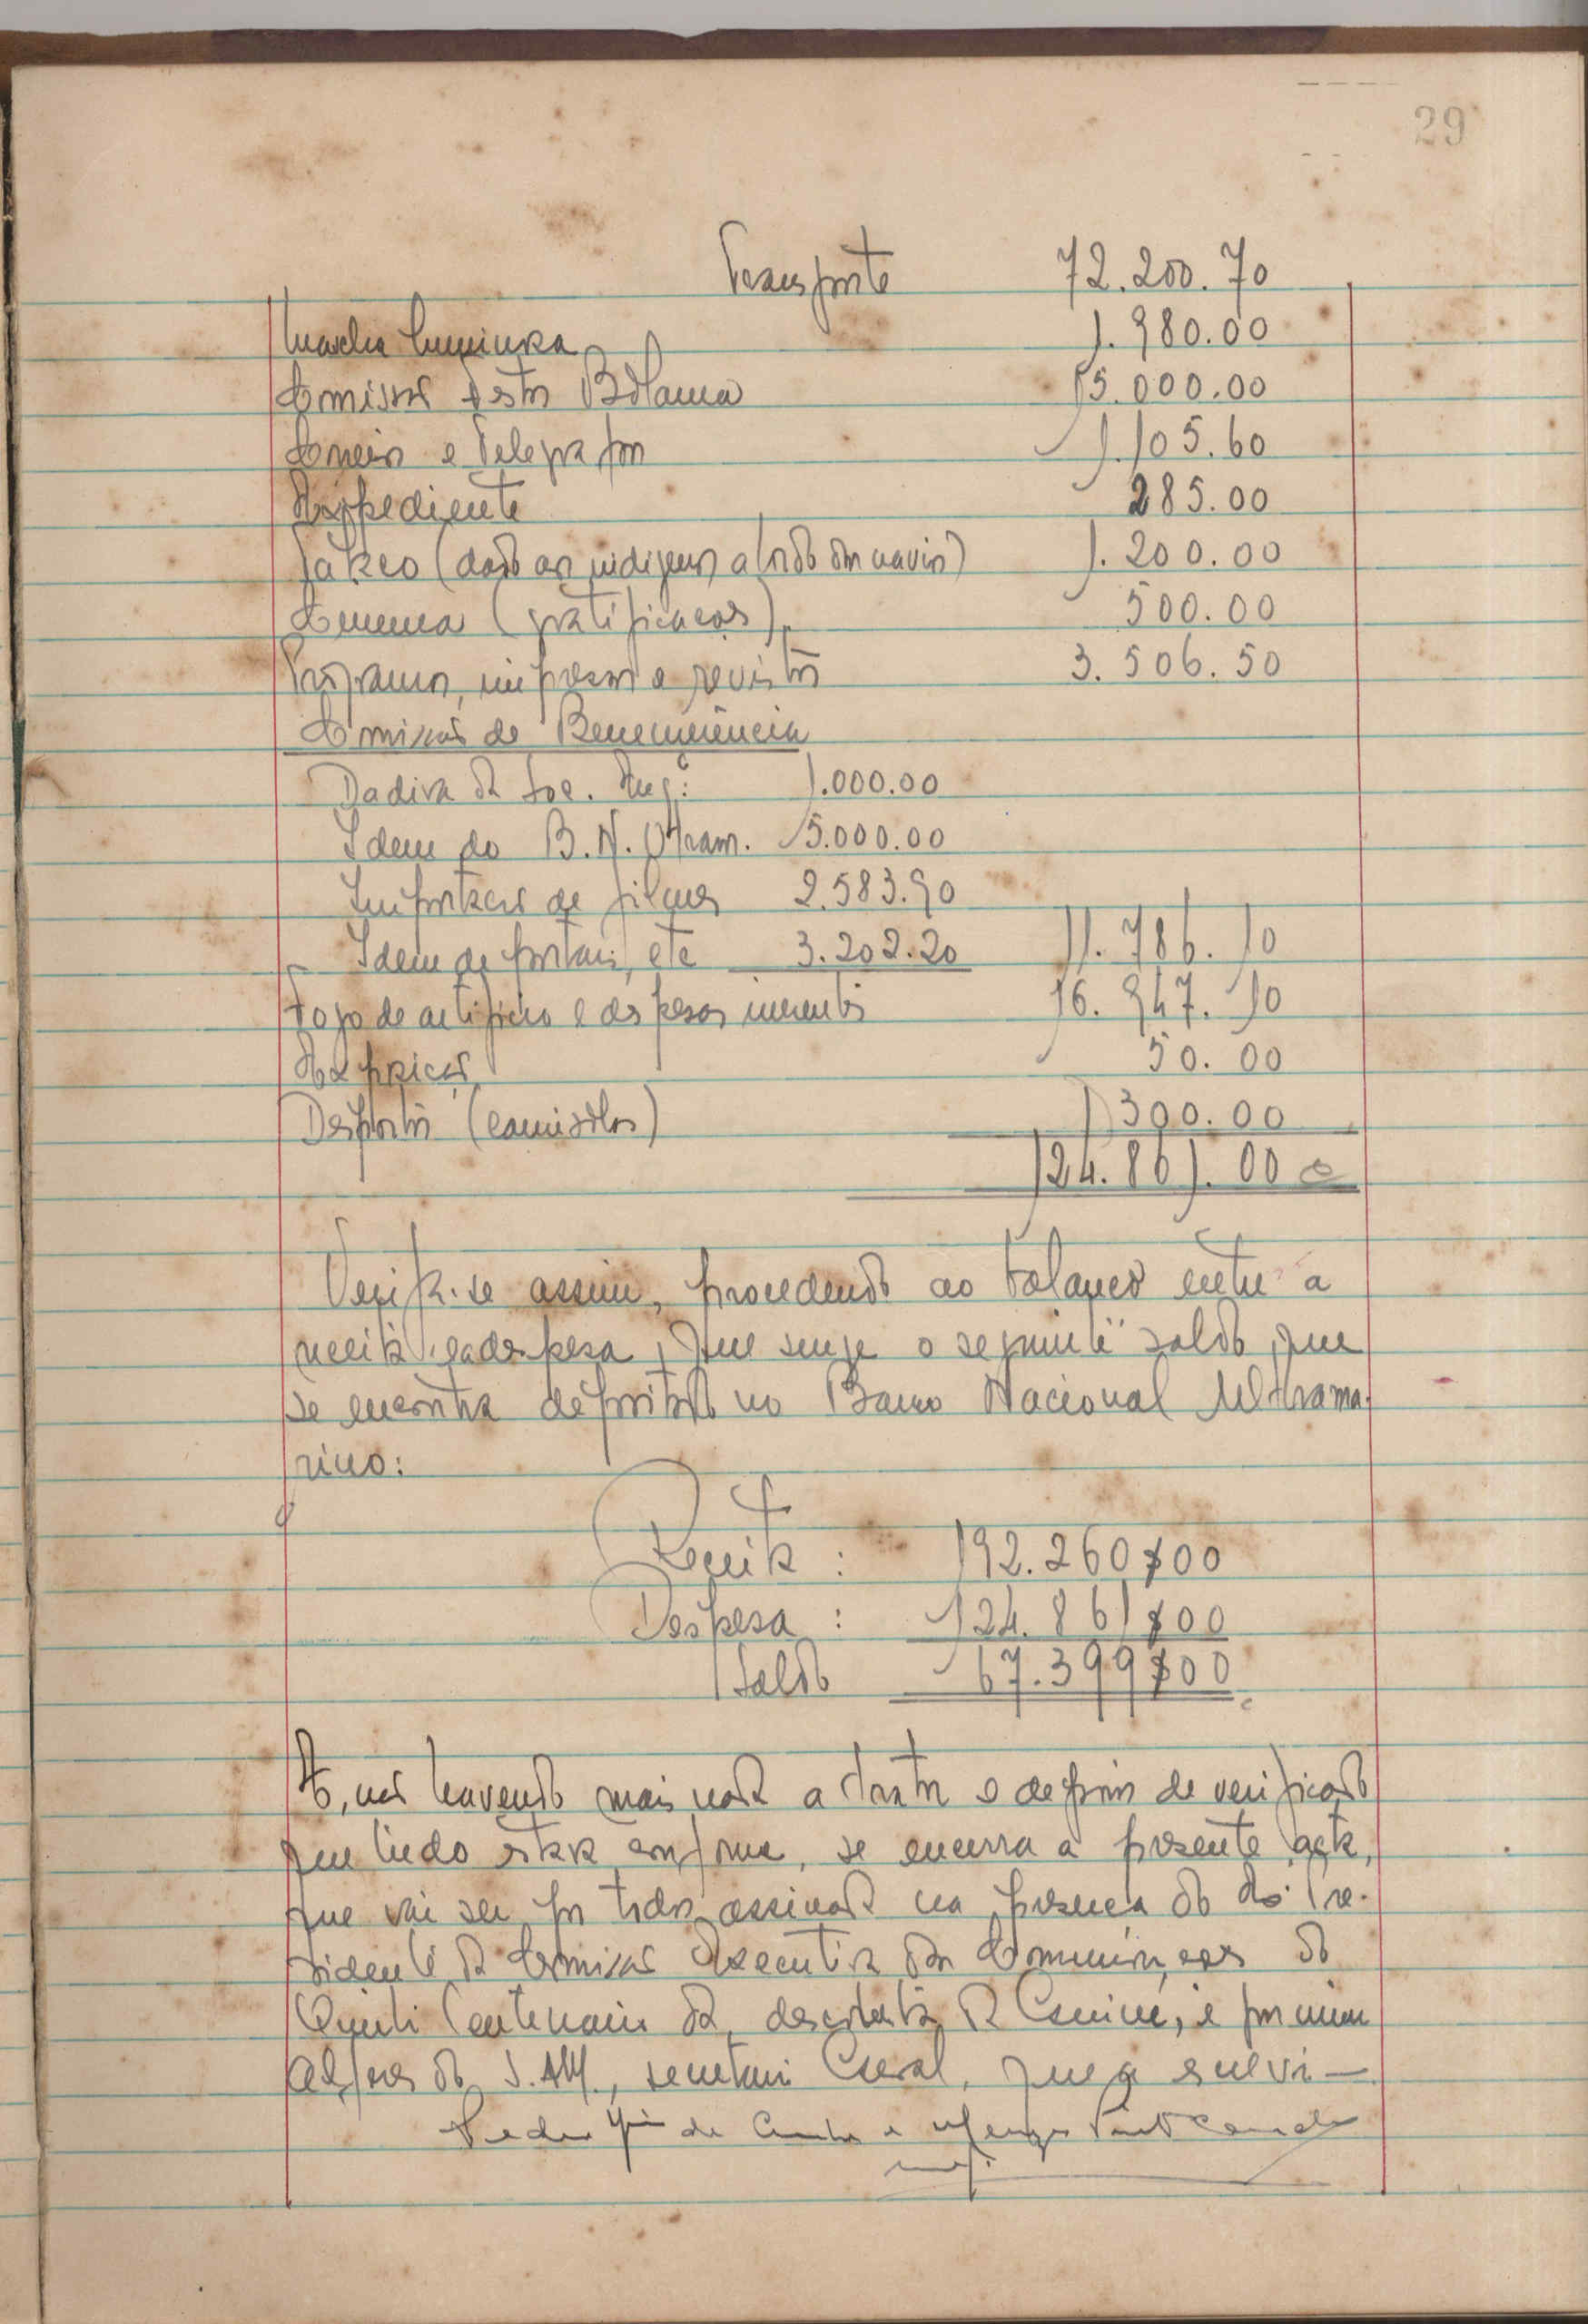 29
Transporte 72.200.70
Marcha luminosa 1.980.00
Comissão Festas Bolama 15.000.00
Correios e Telegrafos 1.105.60
Expediente 285.00
Tabaco (dado aos indigenas a bordo dos navios) 1.200.00
Cinema (gratificação) 500.00
Programas, impressos e revistas 3.506.50
Comissão de Benemerência
Dadiva da Soc. 1.000.00
Idem do B. N. Ultram. 5.000.00
Importação de filmes 2.583.90
Idem de postais, etc 3.202.20 11.786.10
Fogo de artificio e despesas inerentes 16.947.10
50.00
Desportos (camisolas) 300.00
124.861.00
Verifica-se assim, procedendo ao balanço entre a
receita e a despesa, que surge o seguinte saldo, que
se encontra depositado no Banco Nacional Ultrama-
rino:
Receita: 192.260$00
Despesa: 124.861$00
Saldo 67.399$00
E, não havendo mais nada a tratar e depois de verificado
que tudo estava conforme, se encerra a presente acta,
que vai ser por todos assinada na presença do Pre-
sidente da Comissão Executiva das Comemorações do
Quinto Centenario da descoberta da Guiné, e por mim
alferes do S.A.M., secretario Geral, que a escrevi —
Pedro de Cunha e